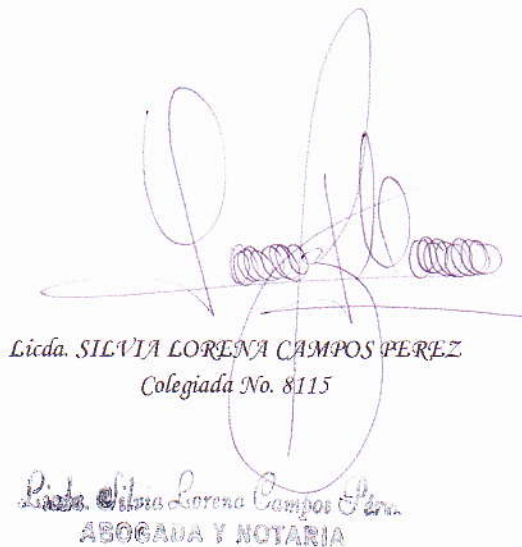 Licda. SILVIA LORENA CAMPOS PEREZ
Colegiada No. 8115
Licda. Silvia Lorena Campos Pérez
ABOGADA Y NOTARIA